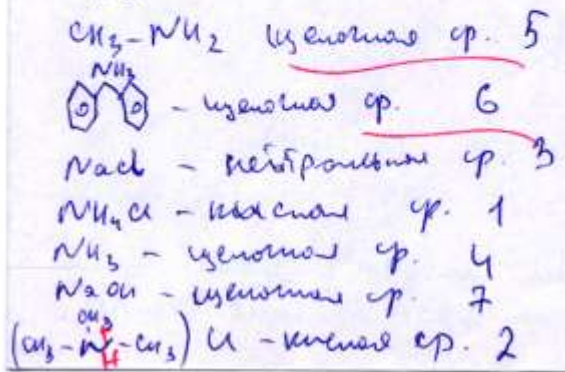 CH₃-NH₂ щелочная ср. 5
NH₂
- щелочная ср. 6
NaCl - нейтральная ср. 3
NH₄Cl - кислая ср. 1
NH₃ - щелочная ср. 4
NaOH - щелочная ср. 7
CH₃
(CH₃-N-CH₃) Cl - кислая ср. 2
H